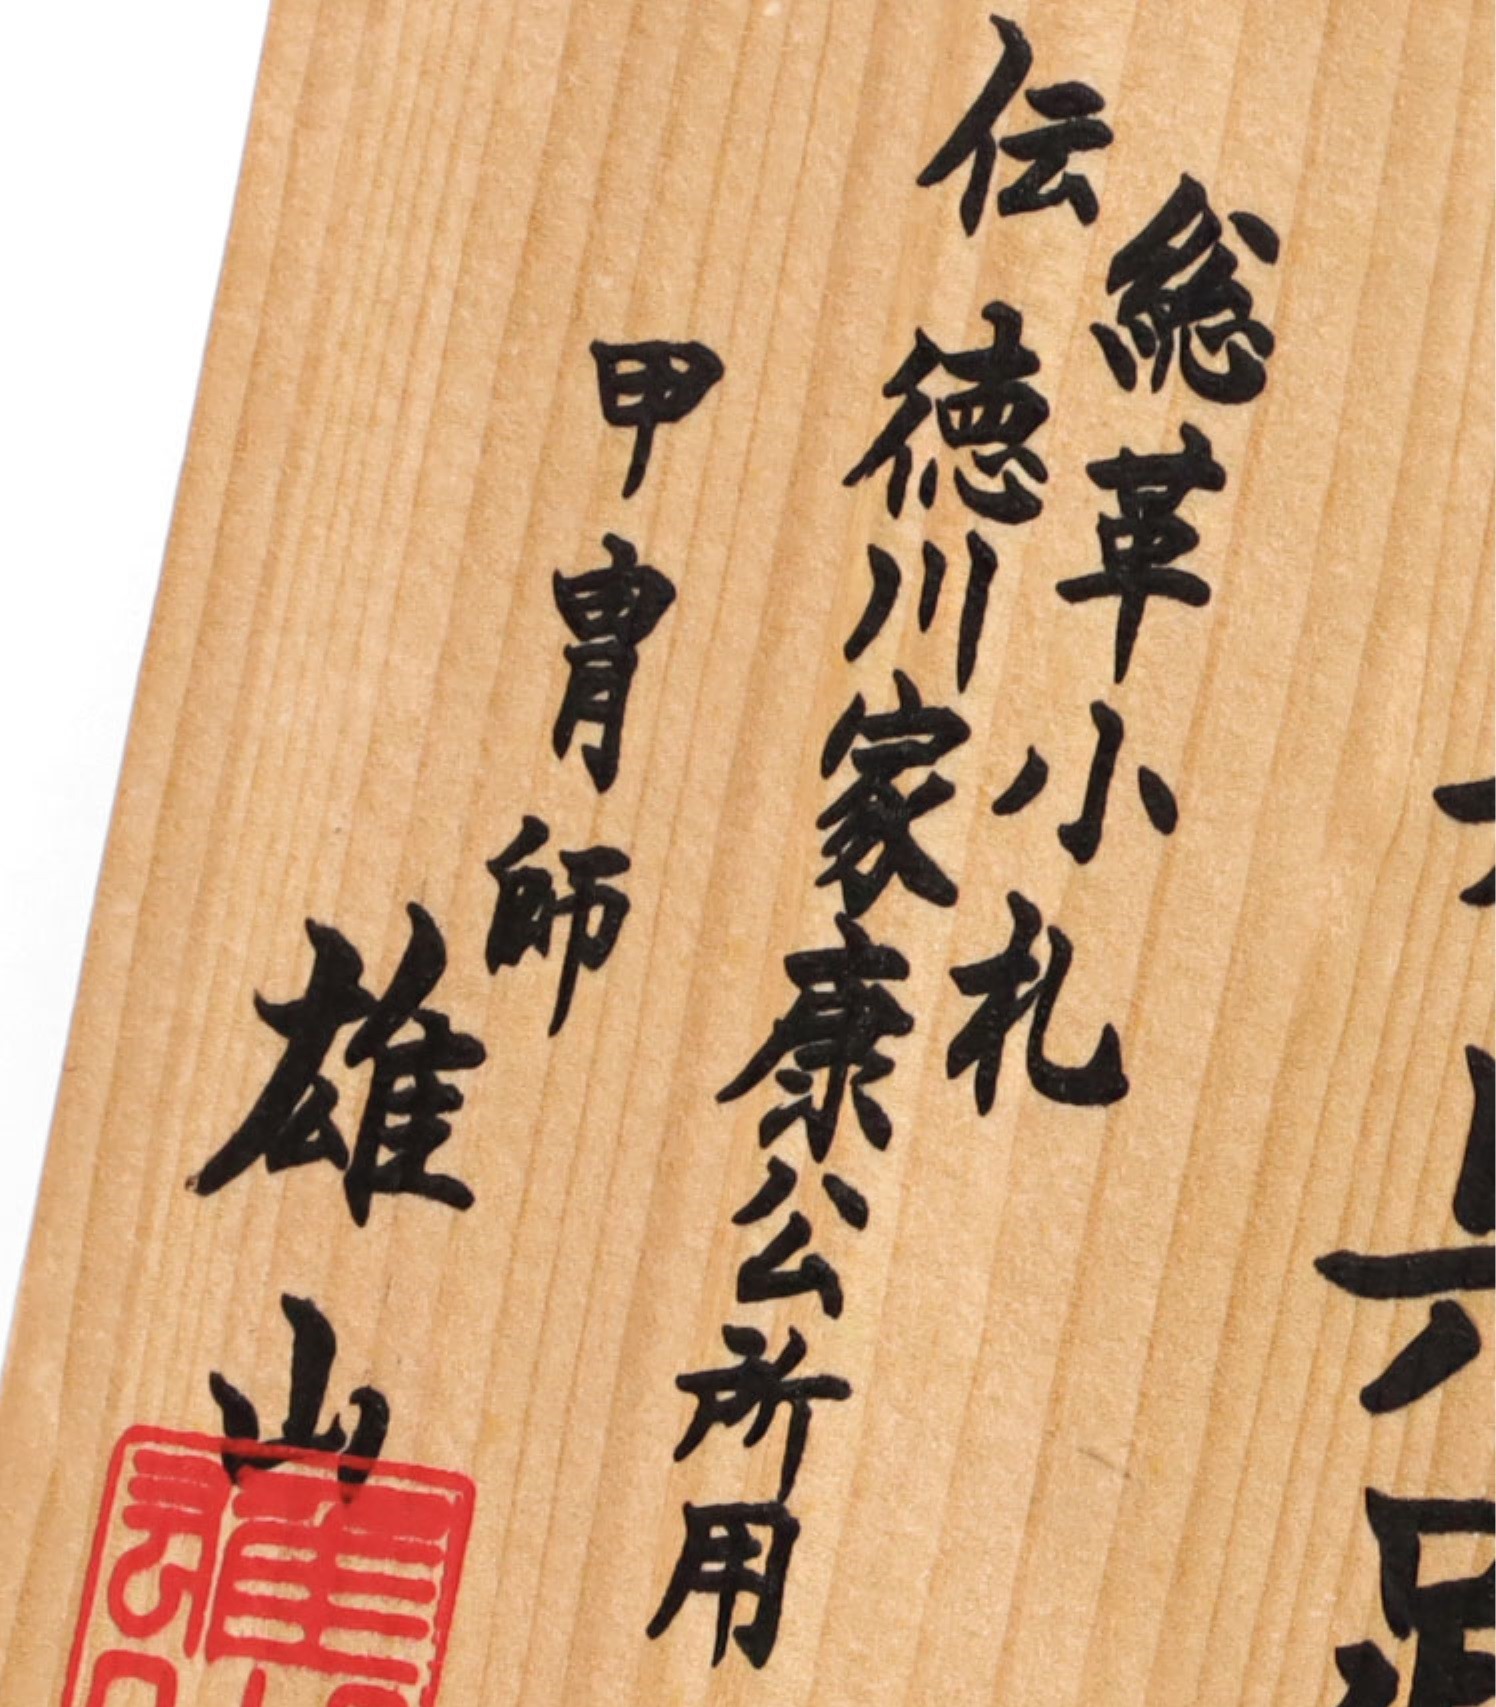 総革小札
伝徳川家康公所用
甲冑師
雄山